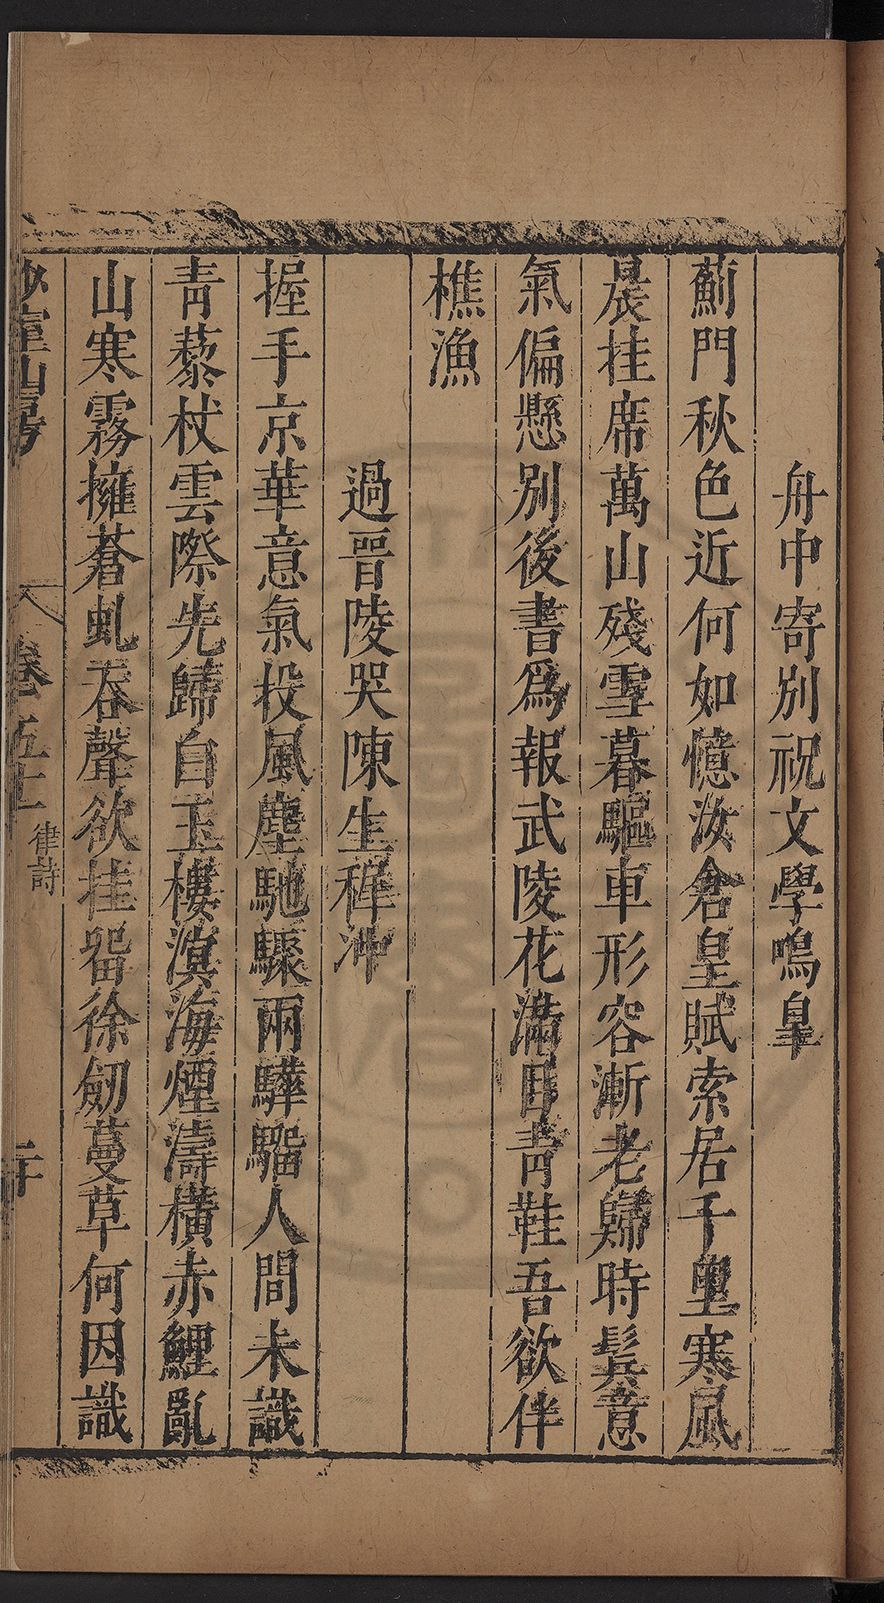 舟中寄別祝文學鳴皐
薊門秋色近何如憶汝倉皇賦索居千里寒風
晨挂席萬山殘雪暮驅車形容漸老歸時鬂意
氣偏懸別後書爲報武陵花滿目靑鞋吾欲伴
樵漁
過晉陵哭陳生稺冲
握手京華意氣投風塵馳驟兩驊騮人間未識
靑藜杖雲際先歸白玉樓溟海煙濤橫赤鯉亂
山寒霧擁蒼虬吞聲欲挂畱徐劒蔓草何因識
少室山房
卷五十
律詩